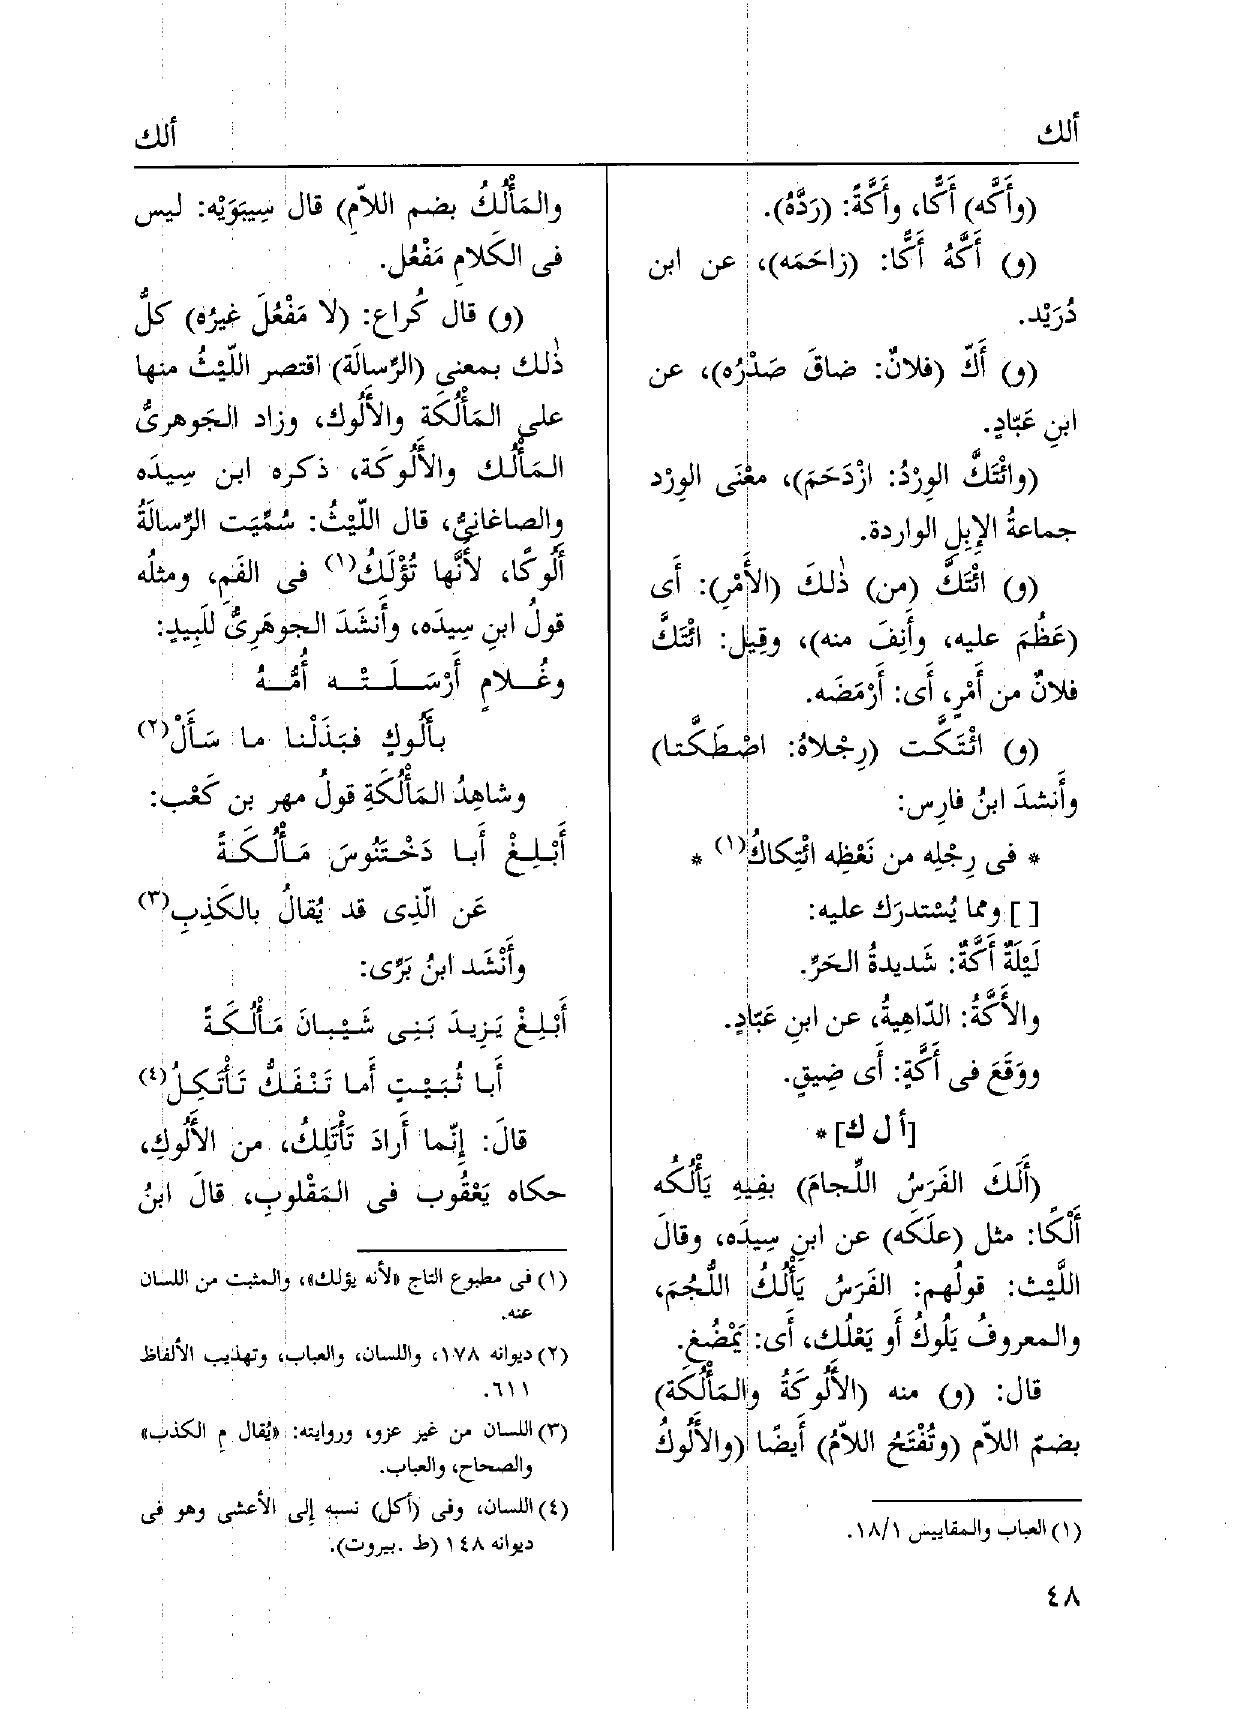 ألك
ألك
(وأَكَّه) أَكًّا، وأَكَّةً: (رَدَّهُ).
(و) أَكَّهُ أَكًّا: (زاحَمَه)، عن ابن
دُرَيْد.
(و) أَكَّ (فلانٌ: ضاقَ صَدْرُه)، عن
ابنِ عَبّادٍ.
(وائْتَكَّ الوِرْدُ: ازْدَحَمَ)، معْنَى الوِرْد
جماعةُ الإبِلِ الواردة.
(و) ائْتَكَّ (من) ذٰلكَ (الأَمْرِ): أَى
(عَظُمَ عليه، وأَنِفَ منه)، وقِيل: ائْتَكَّ
فلانٌ من أَمْرٍ، أَى: أَرْمَضَه.
(و) ائْتَكَّت (رِجْلاهُ: اصْطَكَّتا)
وأَنشدَ ابنُ فارِس:
* فى رِجْلِه من نَعْظِه ائْتِكاكُ(١) *
[ ] ومما يُسْتدرَك عليه:
لَيْلَةٌ أَكَّةٌ: شَديدةُ الحَرِّ.
والأَكَّةُ: الدّاهِيةُ، عن ابنِ عَبّادٍ.
ووَقَعَ فى أَكَّةٍ: أَى ضِيقٍ.
[أ ل ك] *
(أَلَكَ الفَرَسُ اللِّجامَ) بفِيهِ يَأْلُكُه
أَلْكًا: مثل (علَكَه) عن ابنِ سِيدَه، وقالَ
اللَّيْث: قولُهم: الفَرَسُ يَأْلُكُ اللُّجُمَ،
والمعروفُ يَلُوكُ أو يَعْلُك، أَى: يَمْضُغ.
قال: (و) منه (الأَلُوكَةُ والمَأْلُكَة)
بضمّ اللاّم (وتُفْتَحُ اللاّمُ) أَيضًا (والأَلُوكُ
(١) العباب والمقاييس ١٨/١.
والمَأْلُكُ بضم اللاّمِ) قال سِيبَوَيْه: ليس
فى الكَلامِ مَفْعُل.
(و) قال كُراع: (لا مَفْعُلَ غيرُه) كلُّ
ذٰلك بمعنى (الرِّسالَة) اقتصر اللَّيْثُ منها
على المَأْلُكَة والأَلُوك، وزاد الجَوهرىُّ
المَأْلُك والأَلُوكَة، ذكره ابن سِيدَه
والصاغانىُّ، قال اللَّيْثُ: سُمِّيَت الرِّسالَةُ
أَلُوكًا، لأَنَّها تُؤْلَكُ(١) فى الفَمِ، ومثلُه
قولُ ابنِ سِيدَه، وأَنشَدَ الجوهَرِىُّ للَبِيدٍ:
وغُــلامٍ أَرْسَــلَــتْــه أُمُّــهُ
بأَلُوكٍ فبَذَلْنا ما سَأَلْ(٢)
وشاهِدُ المَأْلُكَةِ قولُ مهر بن كَعْب:
أَبْــلِــغْ أَبــا دَخْــتَنُوسَ مَــأْلُــكَــةً
عَن الّذِى قد يُقالُ بالكَذِبِ(٣)
وأَنْشَد ابنُ بَرِّى:
أَبْــلِــغْ يَــزِيدَ بَــنِى شَــيْــبــانَ مَــأْلُــكَــةً
أَبا ثُبَيْتٍ أَما تَنْفَكُّ تَأْتَكِلُ(٤)
قالَ: إنّما أَرادَ تَأْتَلِكُ، من الأَلُوكِ،
حكاه يَعْقُوب فى المَقْلوبِ، قالَ ابنُ
(١) فى مطبوع التاج «لأنه يؤلك»، والمثبت من اللسان
عنه.
(٢) ديوانه ١٧٨، واللسان، والعباب، وتهذيب الألفاظ
٦١١.
(٣) اللسان من غير عزو، وروايته: «يُقال مِ الكذب»
والصحاح، والعباب.
(٤) اللسان، وفى (أكل) نسبه إلى الأعشى وهو فى
ديوانه ١٤٨ (ط .بيروت).
٤٨